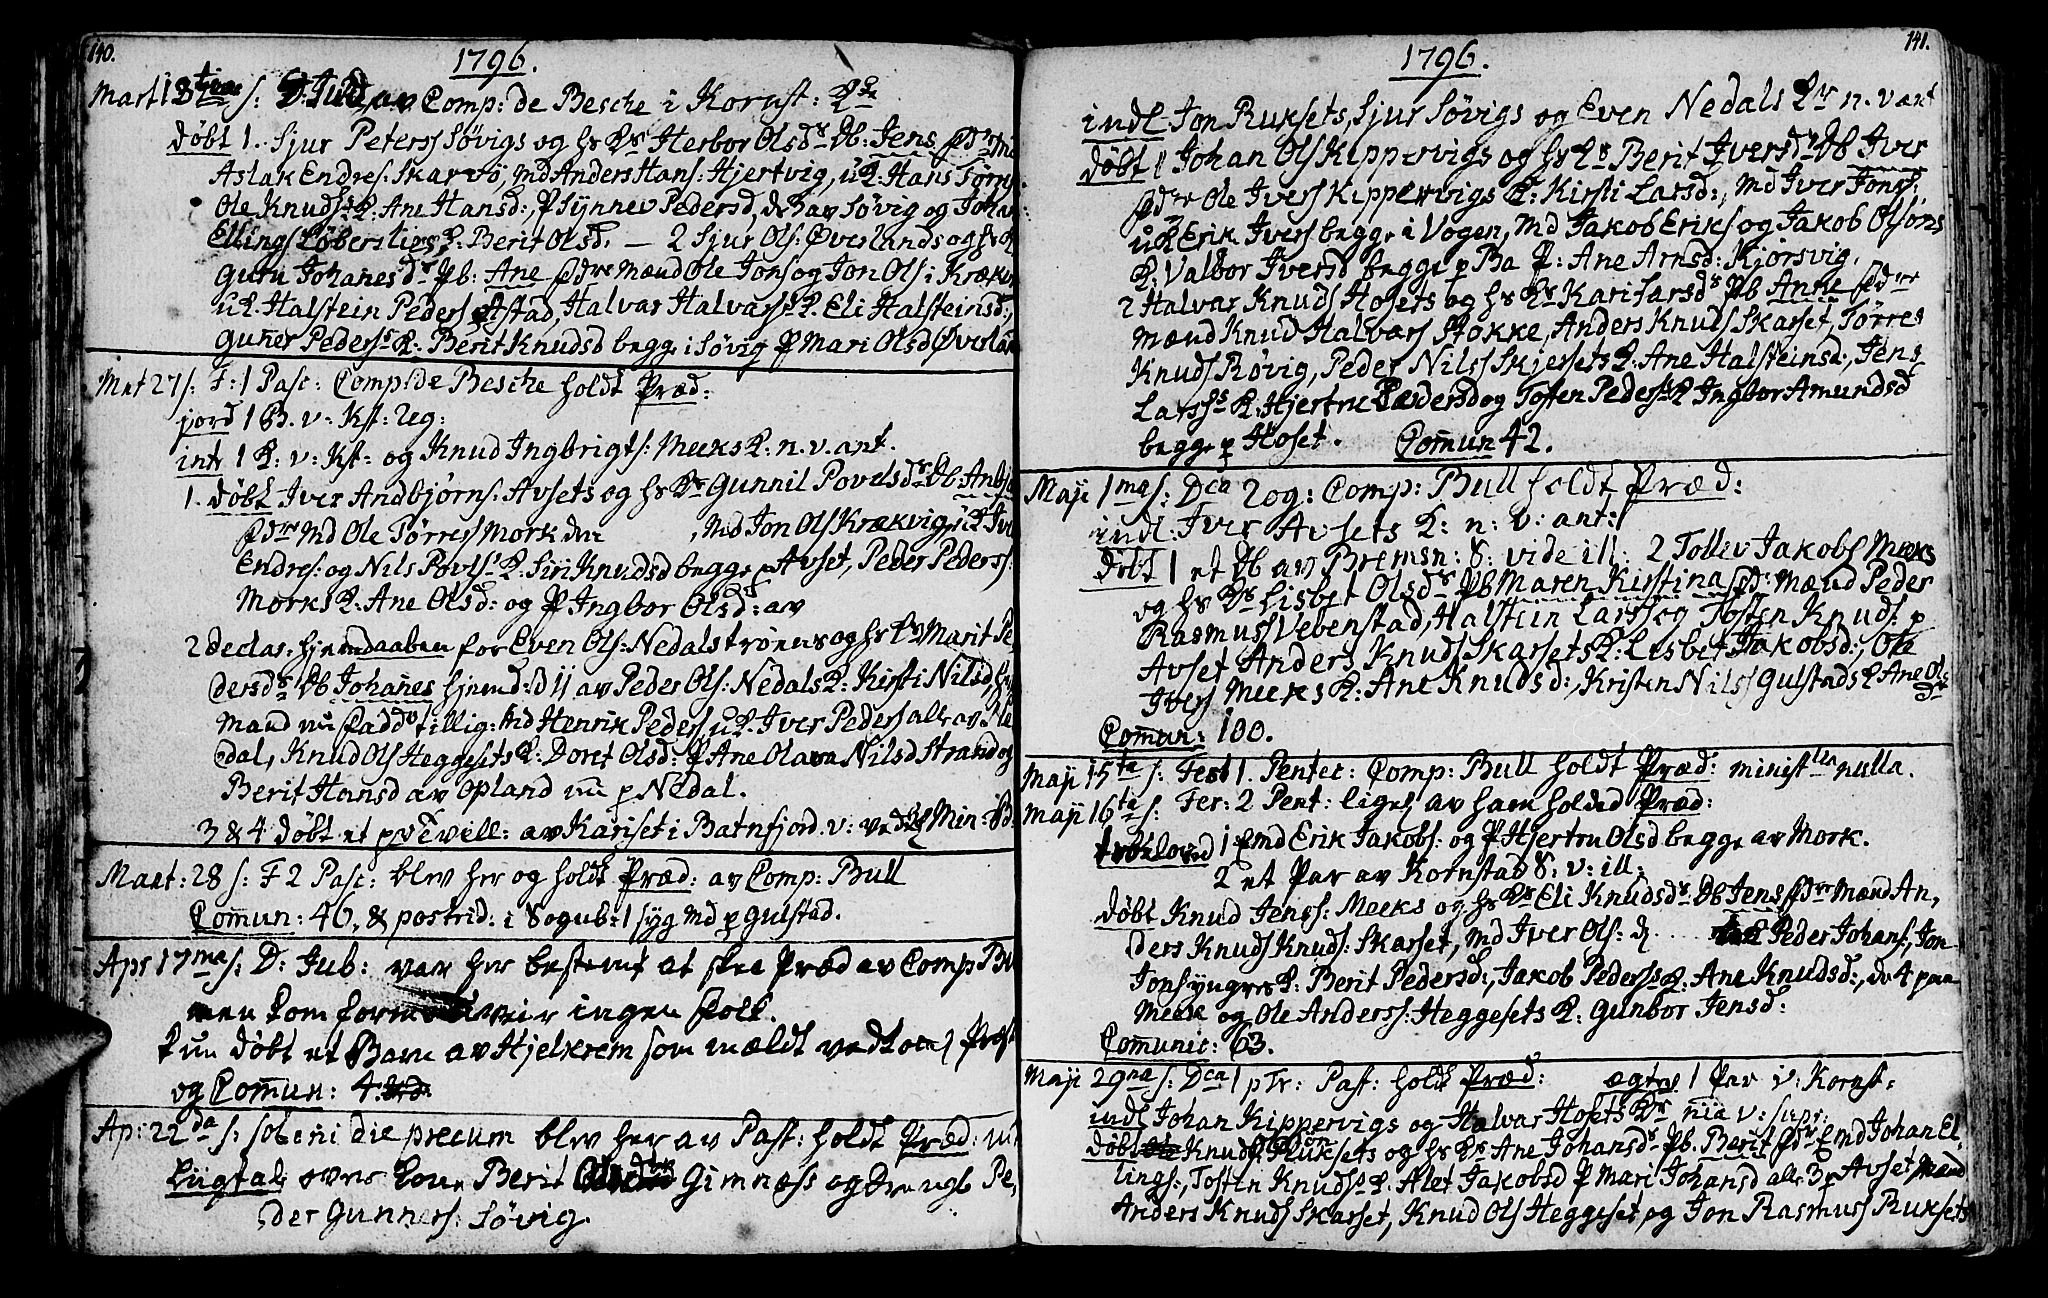 140.
1796.
Mart 13 s: D: Jud: av Comp: de Besche i Kornst:
døbt 1. Sjur Peterss Søvigs og hs Ks Herbor Olsds Db: Jens
Aslak Endres: Skarsø, Md Anders Hans: Hjertvig, uK: Hans Tørris
Ole Knuds K: Ane Hansd:, P Synnev Pedersd, de 3 av Søvig og Joha
Ellings Løberslies K: Berit Olsd. — 2 Sjur Ols: Øverlands og hs
Guru Johanesds Pb: Ane Fdre Mænd Ole Jons og Jon Ols i Kræk
uK. Halstein Peders Astad, Halvar Halvars K. Eli Halsteinsd:,
Guner Peders K: Berit Knudsd begge i Søvig P Mari Olsd Øverla
Mat 27 s: F: 1 Pasc: Comp: de Besche holdt Præd:
jord 1 B. v: Kst: Reg:
intr 1 K: v: Kst: og Knud Ingbrigts: Meeks K: n. v. ant.
1. døbt Iver Andbjørns: Avsets og hs Ks Gunnil Povelsds Db: Anbj
Fdre Md Ole Tørress Mork den , Md Jon Ols Krækvig, uK Ive
Endres: og Nils Povls: K: Siri Knudsd begge p Avset, Peder Peders:
Morks K: Ane Olsd: og P Ingbor Olsd: av
2 declar: hjemdaaben for Even Ols: Nedalstrøens og hs Ks Marit Pe
dersds Db Johanes hjemd: d 11 av Peder Ols: Nedals K: Kirsti Nilsd,
mand nu Fadd tillig: Md Henrik Peders, uK. Iver Peders alle av Ne
dal, Knud Ols Heggesets K: Doret Olsd: P Ane Olava Nilsd Strand og
Berit Hansd av Opland nu p Nedal.
3 & 4 døbt et av Kariset i Batnfjord. v: Min: B:
Mart: 28 s: F 2 Pasc: blev her og holdt Præd: av Comp: Bull
Comun: 46, & postrid: i Sogub: 1 syg Md p Gulstad.
Apr 17ma s: D: Jub: var her bestemt at skee Præd av Comp Bu
men kom formedelst veir ingen Folk.
kun døbt et Barn av Hjelkrem som mældt ved
og Comun: 4
Ap: 22da s: solemni die precum blev her av Past: holdt Præd:
Liigtal over Kone Berit Gimnæss og Drengl Pe,
der Gunners: Søvig.
141.
1796.
indl Jon Ruksets, Sjur Søvigs og Even Nedals Kr n. v ant
døbt 1 Johan Ols Kippervigs og hs Ks Berit Iversds Db Iver
Fdre Ole Ivers Kippervigs K: Kirsti Larsd:, Md Iver Jons:,
uK Erik Ivers begge i Vogen, Md Jakob Eriks og Jakob Olsøns
K: Valbor Iversd begge p Ba P: Ane Arnsd: Kjørsvig.
2 Halvar Knuds Hosets og hs Ks Kari Larsds Pb Anne Fdre
Mænd Knud Halvars Stokke, Anders Knuds Skarset, Tørres
Knuds Røvig, Peder Nilss Skjersets K: Ane Halsteinsd:, Jens
Larss K: Hjertru Pedersd og Tosten Peders K Ingbor Amundsd
begge p Hoset. Comun 42.
Maji 1ma s: Dca Rog: Comp: Bull holdt Præd:
indl: Iver Avsets K: n: v: ant:
døbt 1 et Db av Bremsn: S: vide ill: 2 Tolliv Jakobs Meeks
og hs Ks Lisbet Olsds Pb Maren Kirstina Fdr: Mænd Peder
Rasmuss Vebenstad, Halstein Larss og Tosten Knuds: p
Avset Anders Knuds Skarsets K: Lisbet Jakobsd:, Ole
Ivers Meeks K: Ane Knudsd:, Kristen Nilss Gulstads K Ane Ols
d:
Comun: 100.
Maji 15ta s: Fest 1. Pentec: Comp: Bull holdt Præd: minist nulla.
Maji 16ta s: Fer: 2 Pent: liges av ham holded Præd:
trolovd 1 Emd Erik Jakobs: og P Hjertru Olsd begge av Mork.
2 et Par av Kornstad S: v: ill:
døbt Knud Jenss: Meeks og hs Ks Eli Knudsds Db Jens Fdre Mænd An,
ders Knuds Knuds: Skarset, Md Iver Ols: d .... Peder Johans:, Jon
Jons yngres K: Berit Pedersd:, Jakob Peders K: Ane Knudsd:, de 4 paa
Meek og Ole Anderss: Heggesets K: Gunbor Jensd:
Comunic: 63.
Maji 29na s: Dca 1 p Tr: Past: holdt Præd: ægtev 1 Par v: Kornst:
indl Johan Kippervigs og Halvar Hosets Kr v: supr:
døbt Knuds Ruksets og hs Ks Ane Johansds Pb. Berit Fdre Emd Johan El,
lings:, Tosten Knuds K. Alet Jakobsd P Mari Johansd alle 3 p Avset Mænd
Anders Knuds Skarset, Knud Ols Heggeset og Jon Rasmuss Ruksets